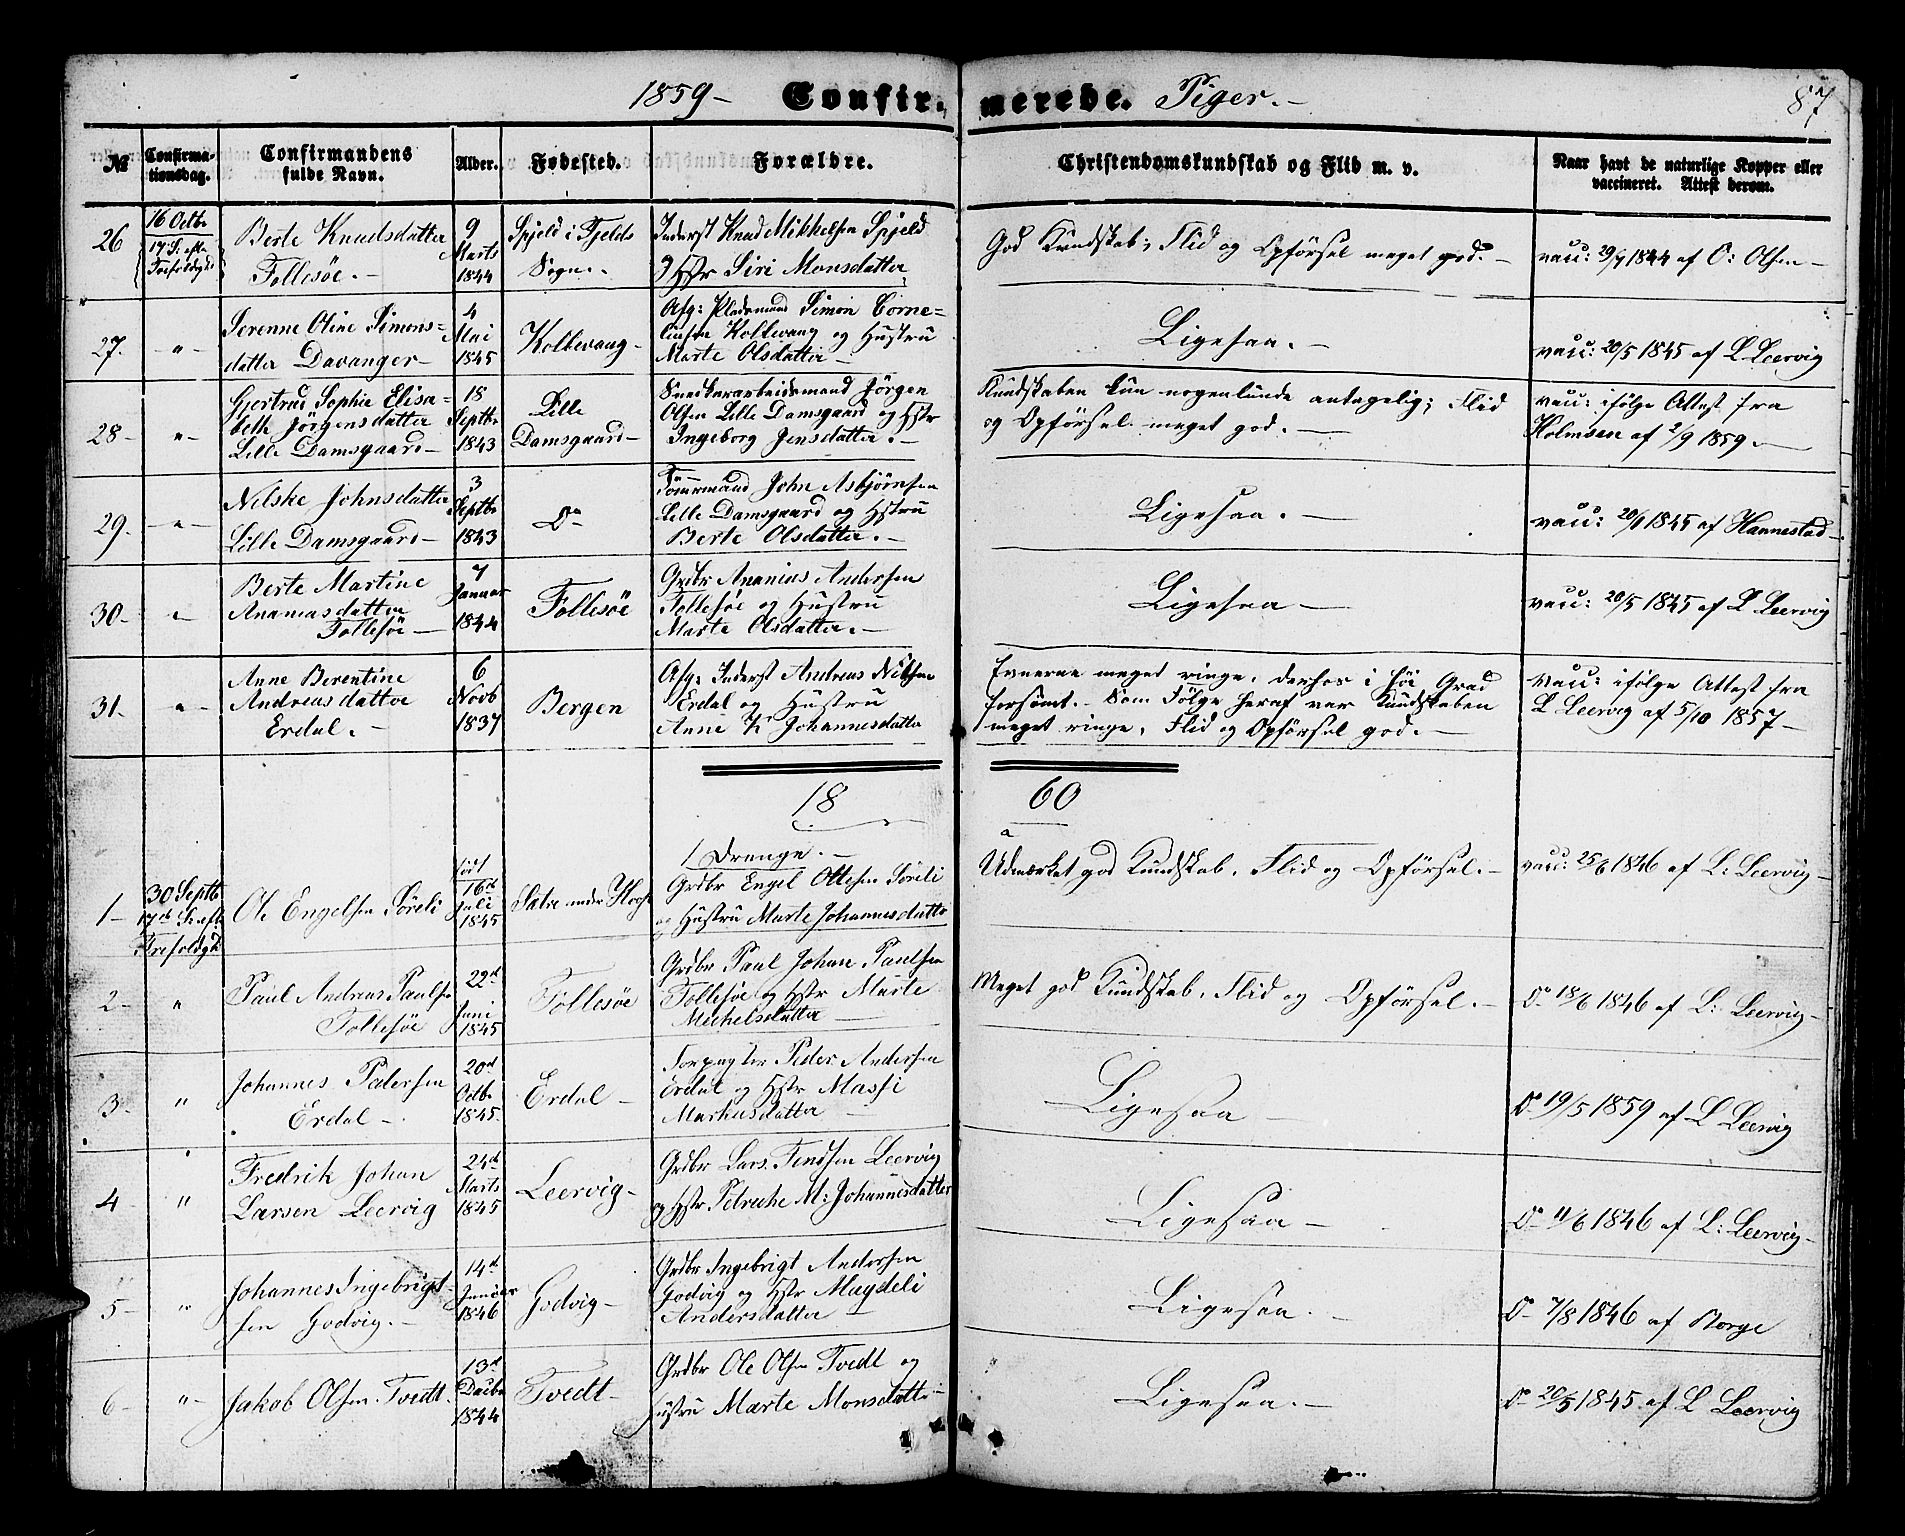 1859 – Confir- merede. Piger. – 87
№ Confirma-tionsdag. Confirmandens fulde Navn. Alder. Fødested. Forældre. Christendomskundskab og Flid m. v. Naar havt de naturlige Kopper eller vaccineret. Attest derom.
26 16 Octbr 17 S. eft. Trefoldighd Berte Knudsdatter Follesøe. – 9 Marts 1844 Spjeld i Fjelds Sogn. Inderst Knud Mikkelsen Spjeld og Hstr Siri Monsdatter God Kundskab; Flid og Opførsel meget god. – vacc: 29/9 1844 af O: Olsen –
27. – " – Serenne Oline Simons= datter Davanger – 4 Mai 1845 Koltevaag – Afg: Pladsmand Simon Corne= liusen Koltevaag og Hustru Marte Olsdatter Ligesaa. – vacc: 20/5 1845 af L Leervig
28 – " – Gjertrud Sophie Elisa= beth Jørgensdatter Lille Damsgaard – 18 Septbr 1843 Lille Damsgaard – Snedkerarbeidsmand Jørgen Olsen Lille Damsgaard og Hstr Ingeborg Jensdatter. – Kundskaben kun nogenlunde antagelig; Flid og Opførsel meget god. – vacc: ifølge Attest fra Holmsen af 2/9 1859. –
29. – " – Nilske Johnsdatter Lille Damsgaard – 3 Septbr 1843 Do Tømmermand John Asbjørnsen Lille Damsgaard og Hstru Berte Olsdatter. – Ligesaa. – vacc: 1845 af Hannestad –
30 – " – Berte Martine Ananiasdatter Follesøe – 7 Januar 1844 Follesøe Grdbr Ananias Andersen Follesøe og Hustru Marte Olsdatter. – Ligesaa – vacc: 20/5 1845 af L Leervig
31. – " – Anne Berentine Andreasdatter Erdal. – 6 Novb 1837 Bergen Afg: Inderst Andreas Nilsen Erdal og Hustru Anne K Johannesdatter Evnerne meget ringe, derhos i høi Grad forsømt. – Som Følge heraf var Kundskaben meget ringe, Flid og Opførsel god. – vacc: ifølge Attest fra L Leervig af 5/10 1857 –
18 60
1 Drenge. –
1 – 30 Septb 17de S. eft Trefoldgh Ole Engelsen Søreli født 16de Juli 1845 Sætre under Grdbr Engel Ottesen Søreli og Hustru Marte Johannesdatter Udmærket god Kundskab, Flid og Opførsel. – vacc: 25/6 1846 af L: Leervig –
2 – " Paul Andreas Paulsen Follesøe 22d Juni 1845 Follesøe Grdbr Paul Johan Paulsen Follesøe og Hstr Marte Michelsdatter – Meget god Kundskab, Flid og Opførsel. – Do 18/6 1846 af L: Leervig –
3 – " Johannes Pedersen Erdal – 20d Octbr 1845. Erdal – Forpagter Peder Andersen Erdal og Hstr Massi Markusdatter – Ligesaa – Do 19/5 1859 af L Leervig
4 " Fredrik Johan Larsen Leervig 24d Marts 1845 Leervig – Grdbr Lars Leervig og Hstr Petreche M: Johannesdatter Ligesaa – Do 11/6 1846 af L: Leervig –
5 – " Johannes Ingebrigt= sen Godvig. – 14d Januar 1846 Godvig – Grdbr Ingebrigt Andersen Godvig og Hstr Magdeli Andersdatter Ligesaa. – Do 7/8 1846 af Borge
6 – " – Jakob Olsen Tvedt 13d Decbr 1844 Tvedt – Grdbr Ole Olsen Tvedt og Hustru Marte Monsdatter Ligesaa. – Do 20/5 1845 af L Leervig